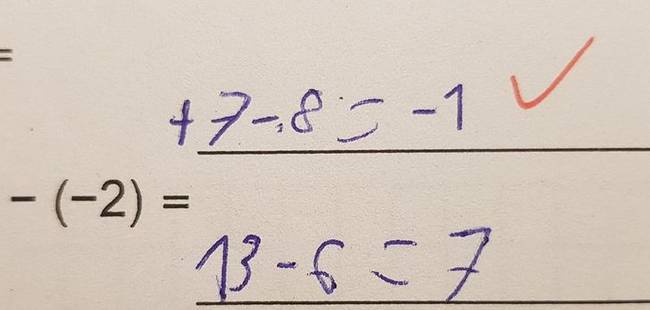 =
+7-8=-1
- (-2) =
13-6=7